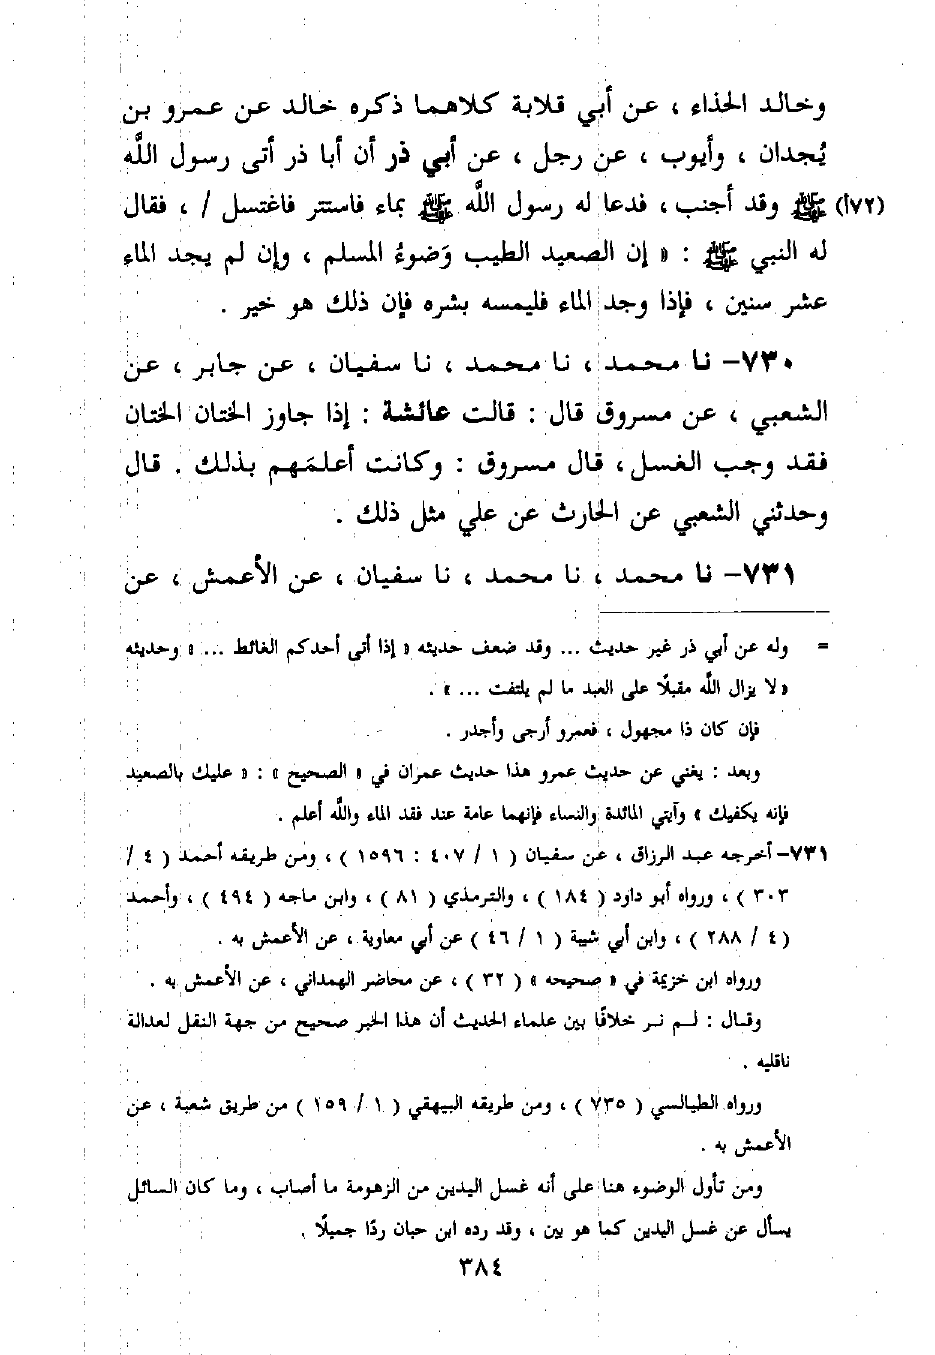 وخالد الحذاء ، عن أبي قلابة كلاهما ذكره خالد عن عمرو بن
بُجدان ، وأيوب ، عن رجل ، عن أبي ذر أن أبا ذر أتى رسول اللَّه
(٧٢أ) ﷺ وقد أجنب ، فدعا له رسول اللَّه ﷺ بماء فاستتر فاغتسل / ، فقال
له النبي ﷺ : « إن الصعيد الطيب وَضوءُ المسلم ، وإن لم يجد الماء
عشر سنين ، فإذا وجد الماء فليمسه بشره فإن ذلك هو خير .
٧٣٠- نا محمد ، نا محمد ، نا سفيان ، عن جابر ، عن
الشعبي ، عن مسروق قال : قالت عائشة : إذا جاوز الختان الختان
فقد وجب الغسل ، قال مسروق : وكانت أعلمَهم بذلك . قال
وحدثني الشعبي عن الحارث عن علي مثل ذلك .
٧٣١- نا محمد ، نا محمد ، نا سفيان ، عن الأعمش ، عن
= وله عن أبي ذر غير حديث ... وقد ضعف حديثه « إذا أتى أحدكم الغائط ... » وحديثه
« لا يزال اللَّه مقبلًا على العبد ما لم يلتفت ... » .
فإن كان ذا مجهول ، فعمرو أرجى وأجدر .
وبعد : يغني عن حديث عمرو هذا حديث عمران في « الصحيح » : « عليك بالصعيد
فإنه يكفيك » وآيتي المائدة والنساء فإنهما عامة عند فقد الماء واللَّه أعلم .
٧٣١- أخرجه عبد الرزاق ، عن سفيان ( ١ / ٤٠٧ : ١٥٩٦ ) ، ومن طريقه أحمد ( ٤ /
٣٠٣ ) ، ورواه أبو داود ( ١٨٤ ) ، والترمذي ( ٨١ ) ، وابن ماجه ( ٤٩٤ ) ، وأحمد
( ٤ / ٢٨٨ ) ، وابن أبي شيبة ( ١ / ٤٦ ) عن أبي معاوية ، عن الأعمش به .
ورواه ابن خزيمة في « صحيحه » ( ٣٢ ) ، عن محاضر الهمداني ، عن الأعمش به .
وقال : لم نر خلافًا بين علماء الحديث أن هذا الخبر صحيح من جهة النقل لعدالة
ناقليه .
ورواه الطيالسي ( ٧٣٥ ) ، ومن طريقه البيهقي ( ١ / ١٥٩ ) من طريق شعبة ، عن
الأعمش به .
ومن تأول الوضوء هنا على أنه غسل اليدين من الزهومة ما أصاب ، وما كان السائل
يسأل عن غسل اليدين كما هو بين ، وقد رده ابن حبان ردًا جميلًا .
٣٨٤